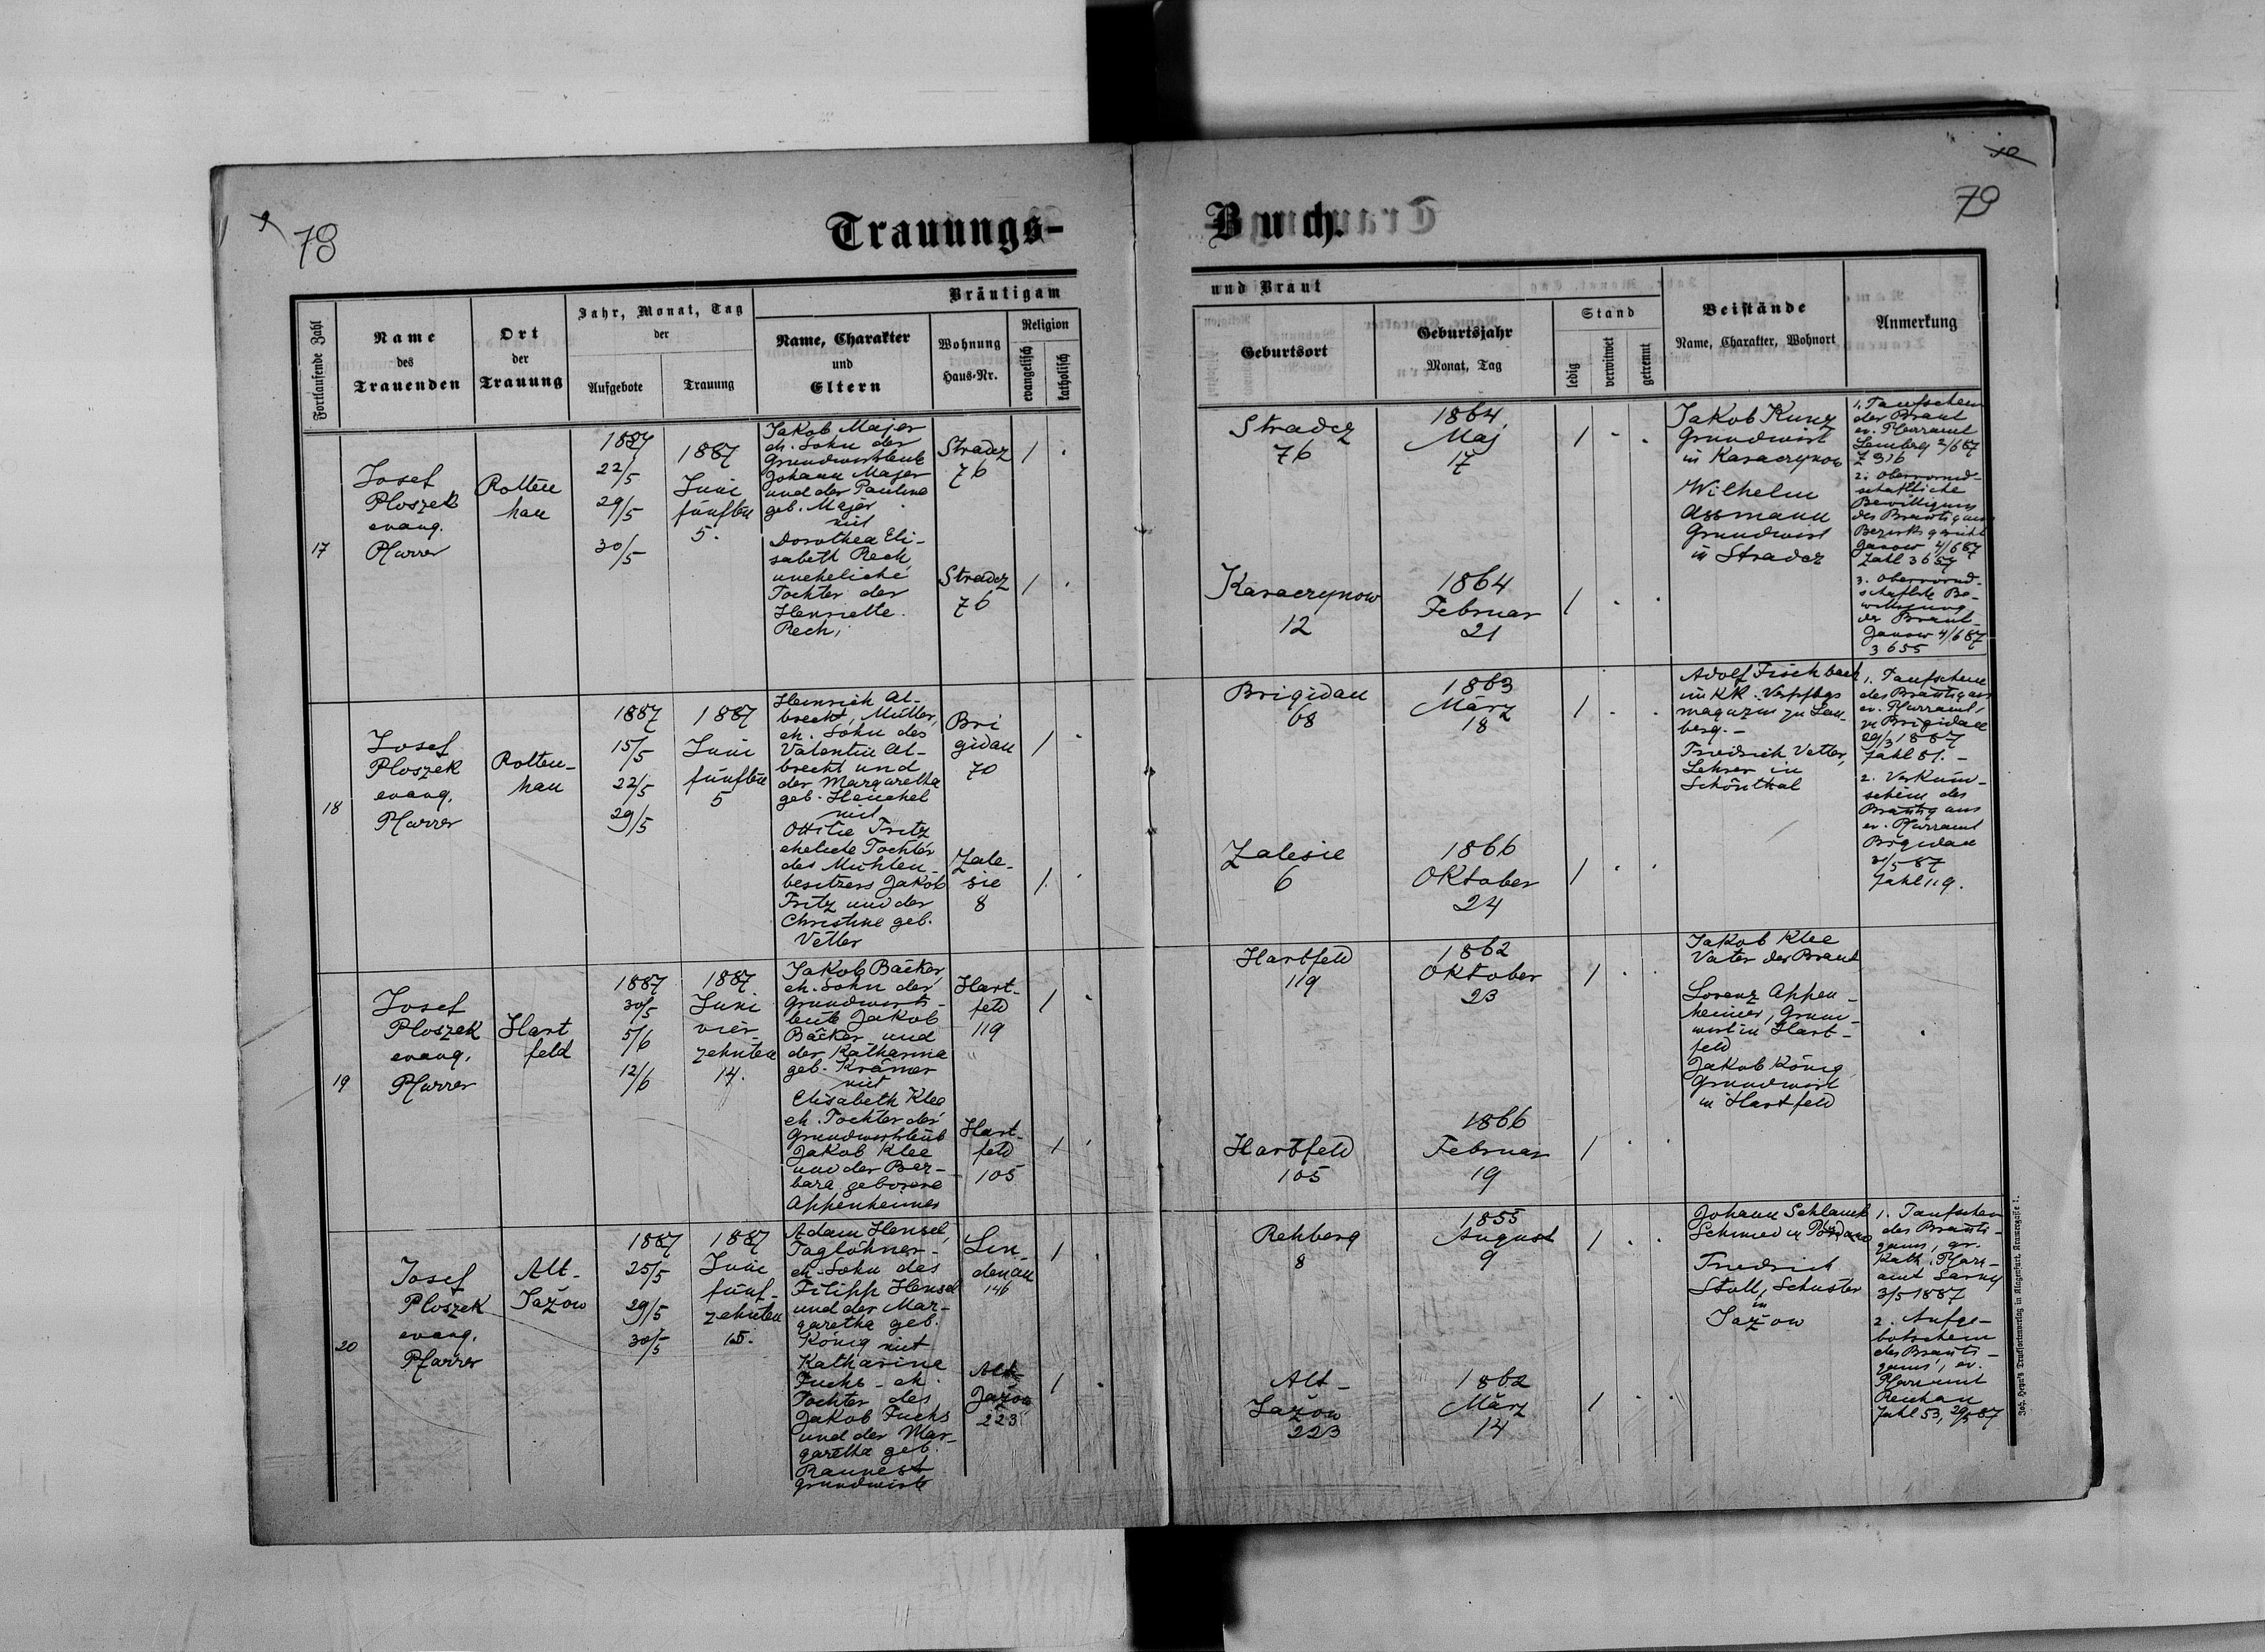 78
Trauungs-
Buch.
79
Fortlaufende Zahl
Name
des
Trauenden
Ort
der
Trauung
Jahr, Monat, Tag
der
Aufgebote
Trauung
Bräutigam
Name, Charakter
und
Eltern
Wohnung
Haus-Nr.
Religion
evangelisch
katholisch
und Braut
Geburtsort
Geburtsjahr
Monat, Tag
Stand
ledig
verwitwet
getrennt
Beistände
Name, Charakter, Wohnort
Anmerkung
17
Josef
Ploszek
evang.
Pfarrer
Rotten
hau
1887
22/5
29/5
30/5
1887
Juni
fünften
5.
Jakob Majer
eh. Sohn der
Grundwirtsleute
Johann Majer
und der Pauline
geb. Majer
mit
Dorothea Eli-
sabeth Rech,
uneheliche
Tochter der
Henriette
Rech;
Stradcz
76
1
Stradcz
76
1
Stradcz
76
1864
Maj
17
1
Karaczynow
12
1864
Februar
21
1
Jakob Kunz
Grundwirt
in Karaczynow
Wilhelm
Assmann
Grundwirt
in Stradcz
1. Taufschein
der Braut
ev. Pfarramt
Lemberg 2/6 87
Z 316
2. Obervormd-
schaftliche
Bewilligung
des Bräutigams
Bezirksgericht
Janow 4/6 87
Zahl 3657
3. Obervormd-
schaftlche Be-
willigung
der Braut-
Janow 4/6 87
3655
18
Josef
Ploszek
evang.
Pfarrer
Rotten-
hau
1887
15/5
22/5
29/5
1887
Juni
fünften
5
Heinrich Al-
brecht, Müller,
eh. Sohn des
Valentin Al-
brecht und
der Margaretha
geb. Henchel
mit
Ottilie Fritz
eheliche Tochter
des Mühlen-
besitzers Jakob
Fritz und der
Christine geb.
Vetter
Bri
gidau
70
1
Zale-
sie
8
1
Brigidau
68
1863
März
18
1
Zalesie
6
1866
Oktober
24
1
Adolf Fischbach
im KK. Verpflgs
magazin zu Lem-
berg. -
Friedrich Vetter,
Lehrer in
Schönthal
1. Taufschein
des Bräutigams
ev. Pfarramt,
zu Brigidau
29/3 1887
Zahl 81. -
2. Verkünd-
schein des
Bräutigams
ev. Pfarramt
Brigidau
31/5 87
Zahl 119.
19
Josef
Ploszek
evang.
Pfarrer
Hart
feld
1887
30/5
5/6
12/6
1887
Juni
vier-
zehnten
14.
Jakob Bäcker,
eh. Sohn der
Grundwirts-
leute Jakob
Bäcker und
der Katharina
geb. Krämer
mit
Elisabeth Klee
eh. Tochter der
Grundwirtsleute
Jakob Klee
und der Bar-
bara geborene
Appenheimer
Hart-
feld
119
1
Hart-
feld
105
1
Hartfeld
119
1862
Oktober
23
1
Hartfeld
105
1866
Februar
19
1
Jakob Klee
Vater der Braut
Lorenz Appen-
heimer, Grund-
wirt in Hart-
feld
Jakob König
Grundwirt
in Hartfeld
20
Josef
Ploszek
evang.
Pfarrer
Alt-
Jazow
1887
25/5
29/5
30/5
1887
Juni
fünf-
zehnten
15.
Adam Hensel,
Taglöhner-
eh. Sohn des
Filipp Hensel
und der Mar-
garetha geb.
König mit
Katharina
Fuchs - eh.
Tochter des
Jakob Fuchs
und der Mar-
garetha geb.
Grundwirte
Lin-
denau
146
1
Alt-
Jazow
223
1
Rehberg
8
1855
August
9
1
Alt-
Jazow
223
1862
März
14
1
Johann Schlamp
Schmied in
Friedrich
Stoll, Schuster
in
Jazow
1. Taufschein
des Bräuti-
gams, gr.
Kath. Pfarr-
amt Sarny
3/5 1887
2. Aufge-
botschein
des Bräuti-
gams, ev.
Pfarramt
Reichau
Zahl 53, 29/5 87
Joh. Heyn's Drucksortenverlag in Klagenfurt, Kramergasse 7.